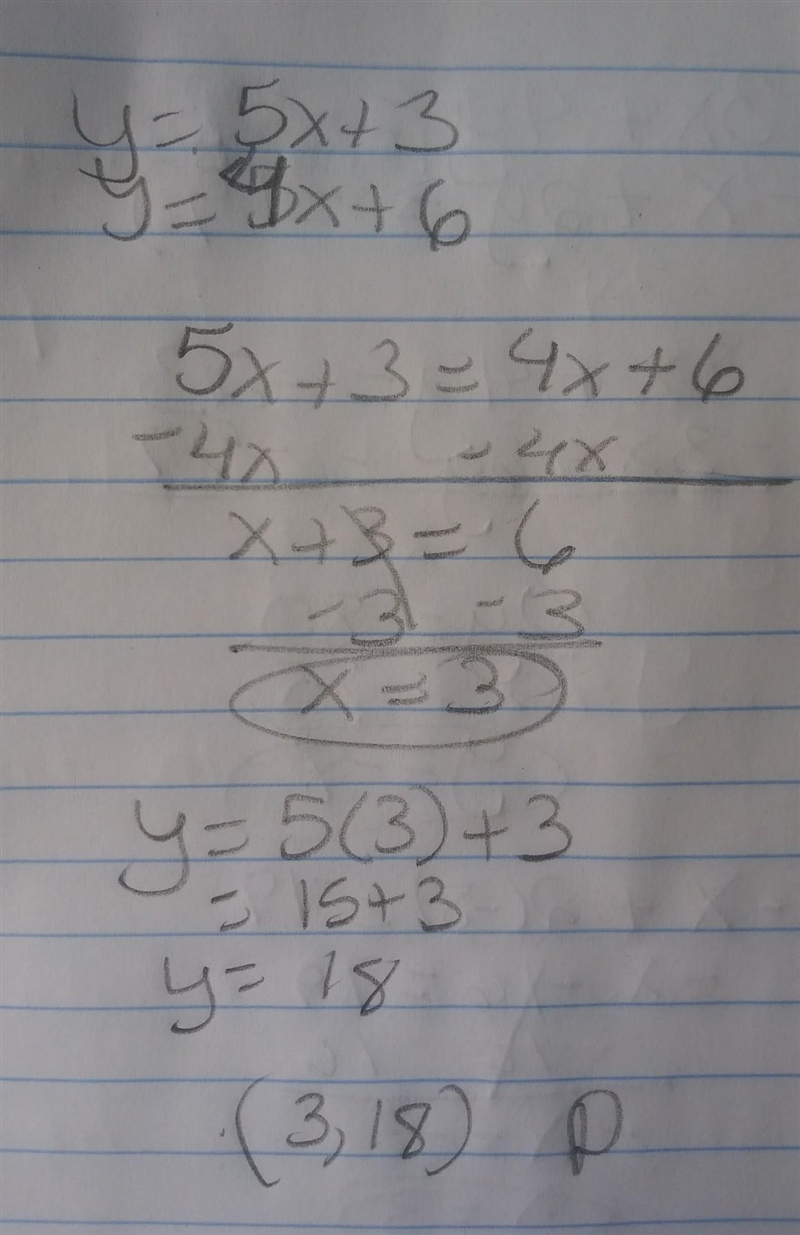 y = 5x + 3
y = 4x + 6
5x + 3 = 4x + 6
-4x -4x
x + 3 = 6
-3 -3
x = 3
y = 5(3) + 3
= 15 + 3
y = 18
(3, 18) D